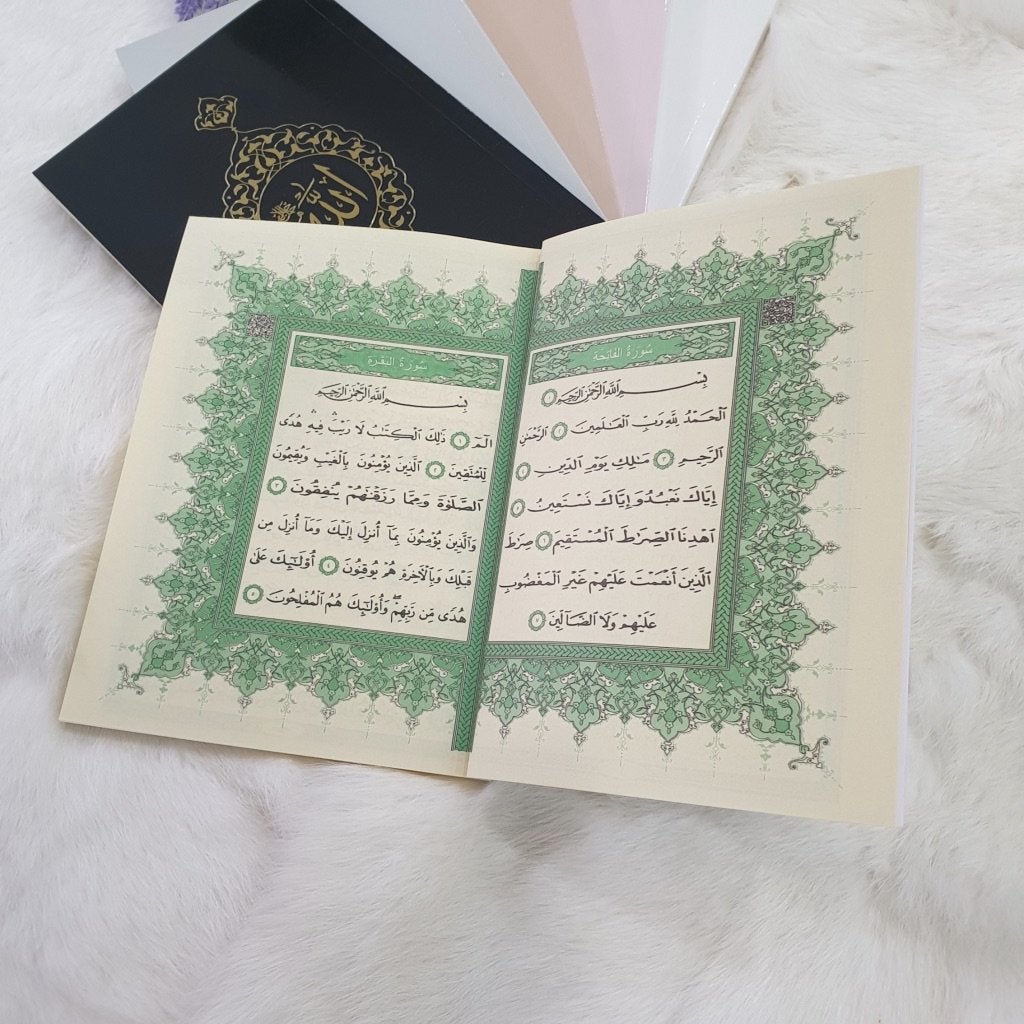 الله
سُورَةُ الفَاتِحَةِ
بِسْمِ اللَّهِ الرَّحْمَٰنِ الرَّحِيمِ ١
الْحَمْدُ لِلَّهِ رَبِّ الْعَالَمِينَ ٢ الرَّحْمَٰنِ
الرَّحِيمِ ٣ مَالِكِ يَوْمِ الدِّينِ ٤
إِيَّاكَ نَعْبُدُ وَإِيَّاكَ نَسْتَعِينُ ٥
اهْدِنَا الصِّرَاطَ الْمُسْتَقِيمَ ٦ صِرَاطَ
الَّذِينَ أَنْعَمْتَ عَلَيْهِمْ غَيْرِ الْمَغْضُوبِ
عَلَيْهِمْ وَلَا الضَّالِّينَ ٧
سُورَةُ البَقَرَةِ
بِسْمِ اللَّهِ الرَّحْمَٰنِ الرَّحِيمِ
الٓمٓ ١ ذَٰلِكَ الْكِتَابُ لَا رَيْبَ ۛ فِيهِ ۛ هُدًى
لِّلْمُتَّقِينَ ٢ الَّذِينَ يُؤْمِنُونَ بِالْغَيْبِ وَيُقِيمُونَ
الصَّلَوٰةَ وَمِمَّا رَزَقْنَٰهُمْ يُنفِقُونَ ٣
وَالَّذِينَ يُؤْمِنُونَ بِمَآ أُنزِلَ إِلَيْكَ وَمَآ أُنزِلَ مِن
قَبْلِكَ وَبِالْآخِرَةِ هُمْ يُوقِنُونَ ٤ أُو۟لَٰٓئِكَ عَلَىٰ
هُدًى مِّن رَّبِّهِمْ ۖ وَأُو۟لَٰٓئِكَ هُمُ الْمُفْلِحُونَ ٥